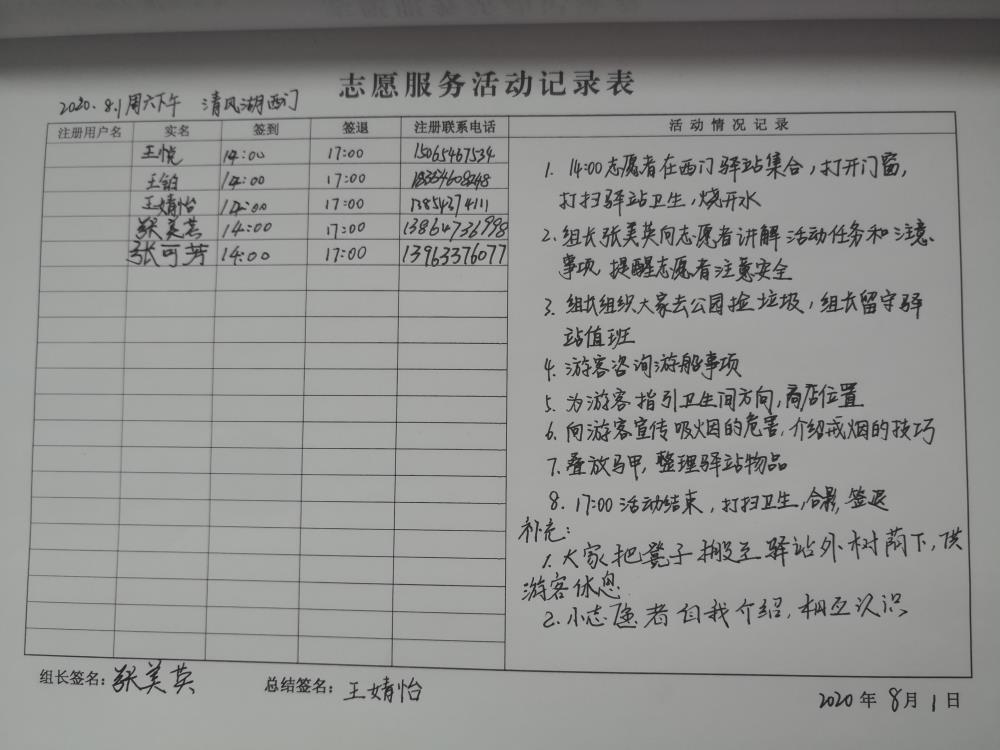 志愿服务活动记录表
2020.8.1周六下午 清风湖西门
注册用户名 实名 签到 签退 注册联系电话 活动情况记录
王悦 14:00 17:00 15065467534
王铂 14:00 17:00
王婧怡 14:00 17:00 13854374111
张美英 14:00 17:00 13864736998
张可芳 14:00 17:00 13963376077
1. 14:00志愿者在西门驿站集合,打开门窗,
打扫驿站卫生,烧开水
2. 组长张美英向志愿者讲解活动任务和注意
事项 提醒志愿者注意安全
3. 组长组织大家去公园捡垃圾,组长留守驿
站值班
4. 游客咨询游船事项
5. 为游客指引卫生间方向,商店位置
6. 向游客宣传吸烟的危害,介绍戒烟的技巧
7. 叠放马甲,整理驿站物品
8. 17:00活动结束,打扫卫生,合影,签退
补充:
1. 大家把凳子搬至驿站外树荫下,供
游客休息
2. 小志愿者自我介绍,相互认识
组长签名:张美英 总结签名:王婧怡 2020年8月1日